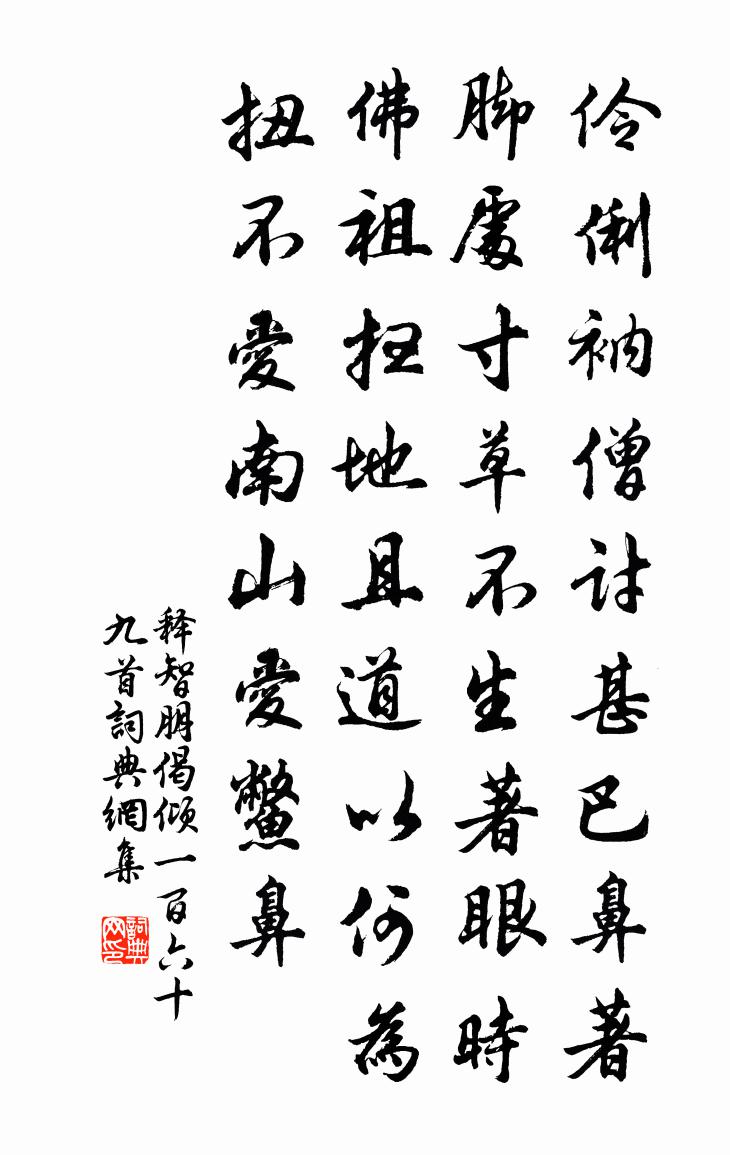 伶俐衲僧討甚巴鼻著
脚處寸草不生著眼時
佛祖扭地且道以何為
扭不愛南山愛鱉鼻
释智朋偈倾一百六十
九首詞典網集
詞典网印